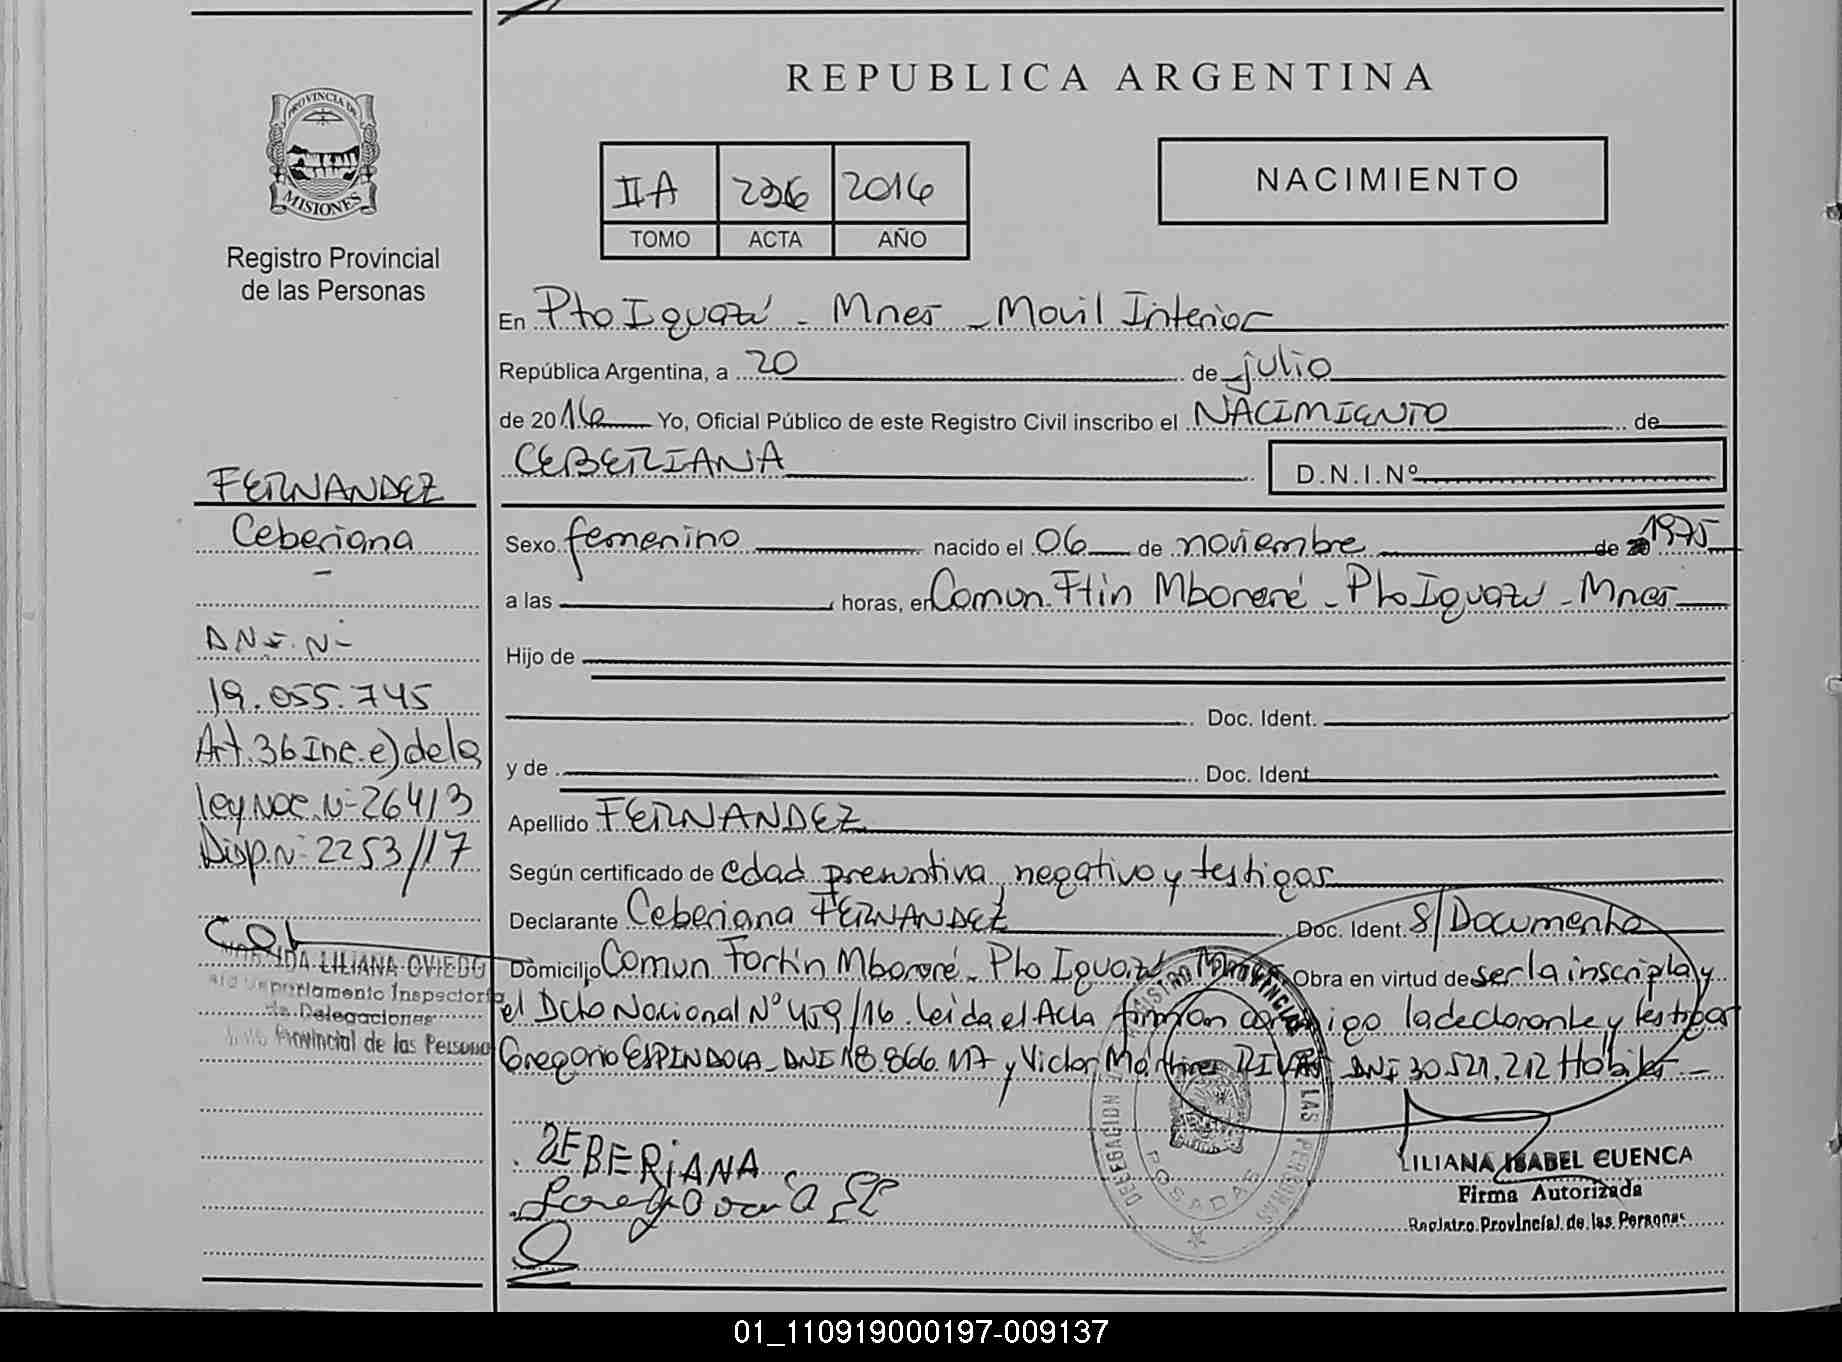 REPUBLICA ARGENTINA
PROVINCIA DE
MISIONES
Registro Provincial
de las Personas
IIA 236 2016
TOMO ACTA AÑO
NACIMIENTO
En Pto Iguazú - Mnes - Movil Interior
República Argentina, a 20 de julio
de 2016 Yo, Oficial Público de este Registro Civil inscribo el NACIMIENTO de
CEBERIANA D.N.I.Nº
Sexo femenino nacido el 06 de noviembre de 1975
a las horas, en Comun. Ftin Mbororé - Pto Iguazú - Mnes
Hijo de
Doc. Ident.
y de Doc. Ident
Apellido FERNANDEZ
Según certificado de edad presuntiva, negativo y testigos
Declarante Ceberiana FERNANDEZ Doc. Ident. S/Documento
Domicilio Comun Fortin Mbororé - Pto Iguazú Mnes Obra en virtud de ser la inscripta y
el Dcto Nacional Nº 459/16. Leida el Acta firman conmigo la declarante y testigos
Gregorio ESPINDOLA - DNI 18.866.117 y Victor Martinez RIVAS DNI 30.521.212 Hábiles -
ZEBERIANA
LILIANA ISABEL CUENCA
Firma Autorizada
Registro Provincial de las Personas
DELEGACION POSADAS
FERNANDEZ
Ceberiana
-
D.N.I. Nº
19.055.745
Art. 36 Inc. e) de la
ley Nac. Nº 26413
Disp. Nº 2253/17
LILIANA OVIEDO
Departamento Inspectoria
de Delegaciones
Provincial de las Personas
01_110919000197-009137